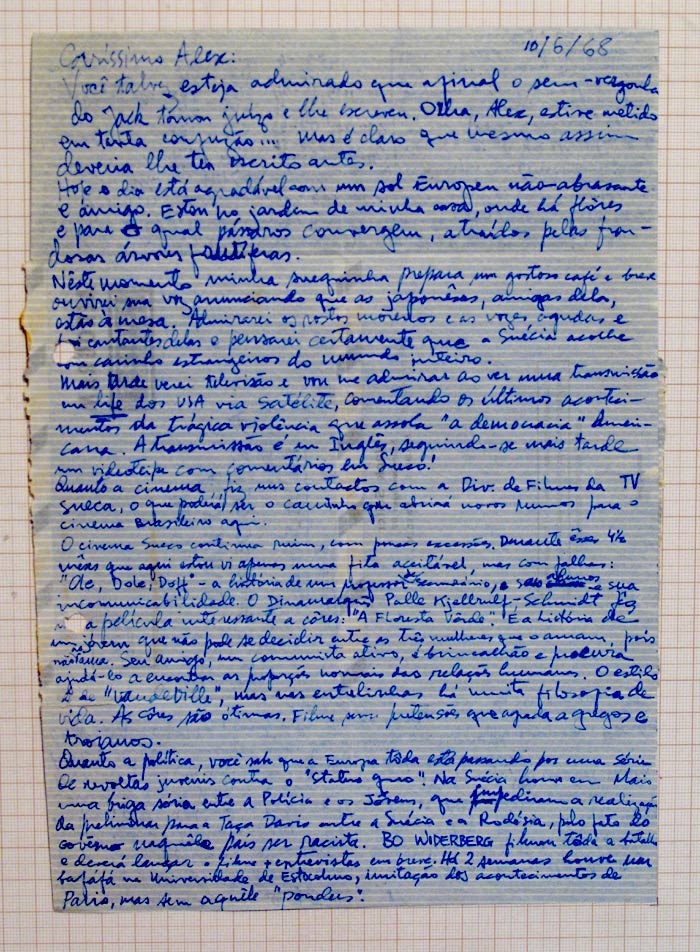 10/6/68
Caríssimo Alex:
Você talvez esteja admirado que afinal o sem-vergonha
do Jack tomou juízo e lhe escreveu. Olha, Alex, estive metido
em tanta confusão... mas é claro que mesmo assim
deveria lhe ter escrito antes.
Hoje o dia está agradável com um sol Europeu não-abrasante
e amigo. Estou no jardim de minha casa, onde há flôres
e para o qual pássaros convergem, atraídos pelas fron-
dosas árvores frutíferas.
Nêste momento minha suequinha prepara um gostoso café e breve
ouvirei sua voz anunciando que as japonêsas, amigas dela,
estão à mesa. Admirarei os rostos morenos e as vozes agudas e
cantantes delas e pensarei certamente que a Suécia acolhe
com carinho estrangeiros do mundo inteiro.
Mais tarde verei televisão e vou me admirar ao ver uma transmissão
em life dos USA via satélite, comentando os últimos aconteci-
mentos da trágica violência que assola "a democracia" Ameri-
cana. A transmissão é em Inglês, seguindo-se mais tarde
um videoteipe com comentários em Sueco!
Quanto a cinema, fiz uns contactos com a Div. de Filmes da TV
sueca, o que poderá ser o caminho que abrirá novos rumos para o
cinema Brasileiro aqui.
O cinema Sueco continua ruim, com poucas excessões. Durante êsses 4½
mêses que aqui estou vi apenas uma fita aceitável, mas com falhas:
"Ole, Dole, Doff" - a história de um professor e sua
incomunicabilidade. O Dinamarquês Palle Kjellrulf-Schmidt fez
a película interessante a côres: "A Floresta Vêrde". E a história de
um jovem que não pode se decidir entre as três mulheres que o amam, pois
não Seu amigo, um comunista ativo, é brincalhão e procura
ajudá-lo a encontrar as proporções normais das relações humanas. O estilo
é de "Vaudeville", mas nas entrelinhas há muita filosofia de
vida. As côres são ótimas. Filme sem pretensões que agrada a gregos e
troianos.
Quanto a política, você sabe que a Europa tôda está passando por uma série
de revoltas juvenis contra o "Status quo". Na Suécia houve em Maio
uma briga séria entre a Polícia e os Jovens, que impediram a realização
da preliminar para a Taça Davis entre a Suécia e a Rodésia, pelo fato do
govêrno naquêle país ser racista. BO WIDERBERG filmou tôda a batalha
e deverá lançar o filme e entrevistas em breve. Há 2 semanas houve um
bafafá na Universidade de Estocolmo, imitação dos acontecimentos de
Paris, mas sem aquêle "pondus".